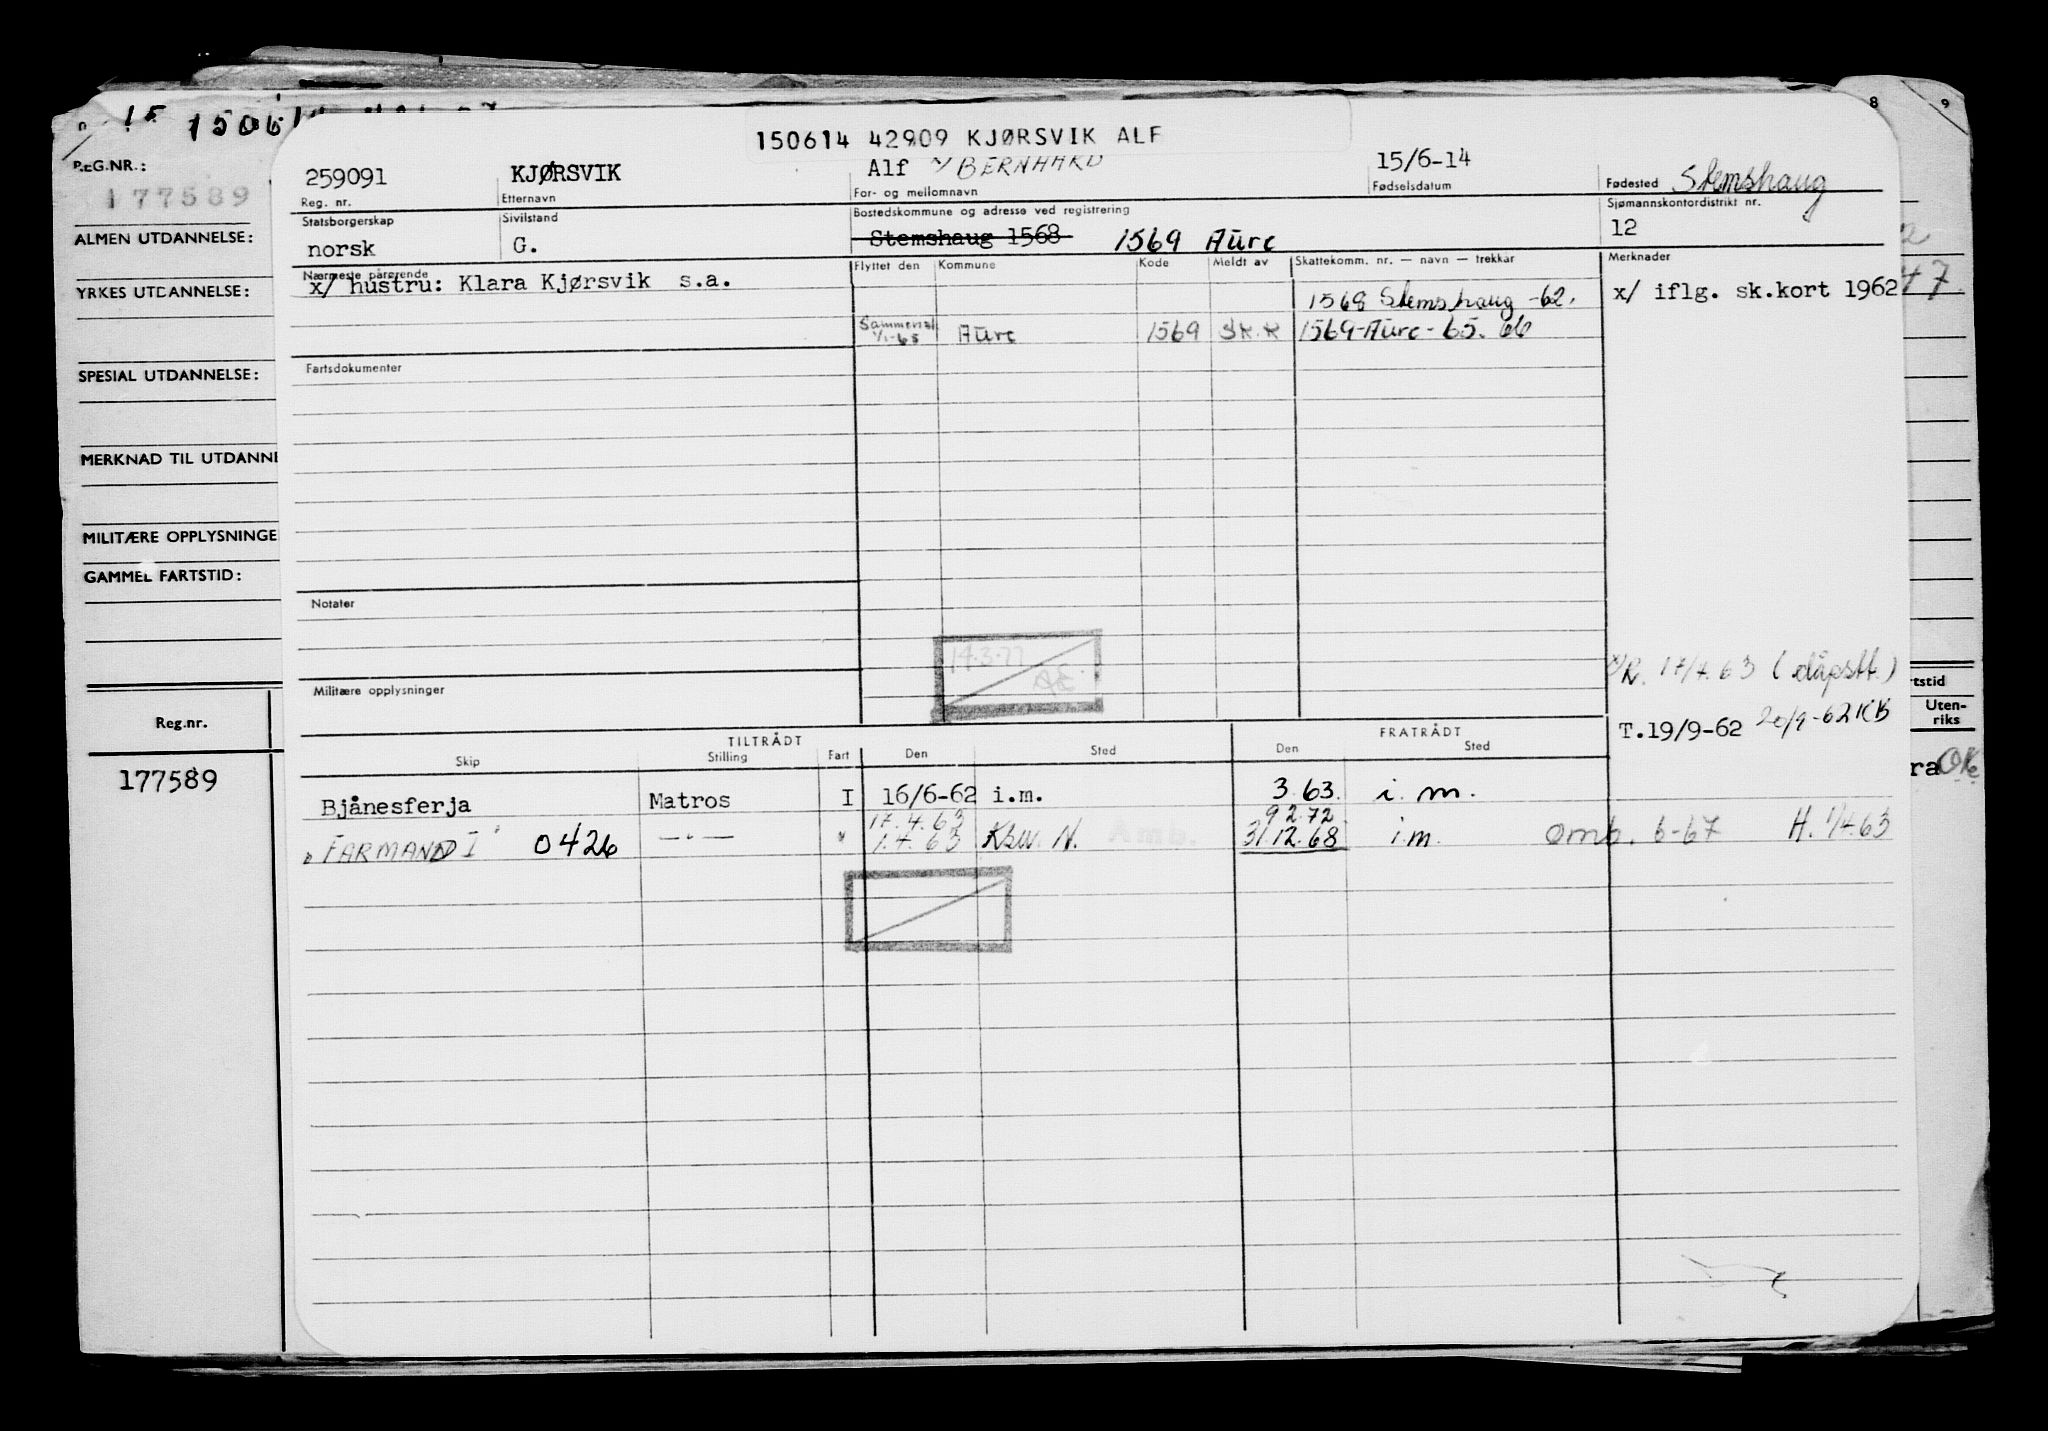 8 9
15
REG.NR.:
177589
ALMEN UTDANNELSE:
YRKES UTDANNELSE:
SPESIAL UTDANNELSE:
MERKNAD TIL UTDANNE
MILITÆRE OPPLYSNINGE
GAMMEL FARTSTID:
Reg.nr.
177589
150614 42909 KJØRSVIK ALF
259091 KJØRSVIK Alf x/ BERNHARD 15/6-14 Stemshaug
Reg. nr. Etternavn For- og mellomnavn Fødselsdatum Fødested
Statsborgerskap Sivilstand Bostedskommune og adresse ved registrering Sjømannskontordistrikt nr.
norsk G. Stemshaug 1568 1569 Aure 12
Nærmeste pårørende Flyttet den Kommune Kode Meldt av Skattekomm. nr. — navn — trekkår Merknader
x/ hustru: Klara Kjørsvik s.a. 1568 Stemshaug -62. x/ iflg. sk.kort 1962 47
1/1-65 Aure 1569 Sk.k 1569-Aure-65. 66
Fartsdokumenter
Notater
14.3.77
Militære opplysninger
x/R. 17/4.63 (dåpsatt.)
T.19/9-62 20/9-62 KB
TILTRÅDT FRATRÅDT
Skip Stilling Fart Den Sted Den Sted
Bjånesferja Matros I 16/6-62 i.m. 3.63. i.m.
17.4.63 9 2.72
"FARMAND I" 0426 —"— " 1.4.63 Ksu. N. Amb. 31.12.68 i.m. omb. 6-67 H. 1/4.63
rtstid
Uten-
riks
ra OK